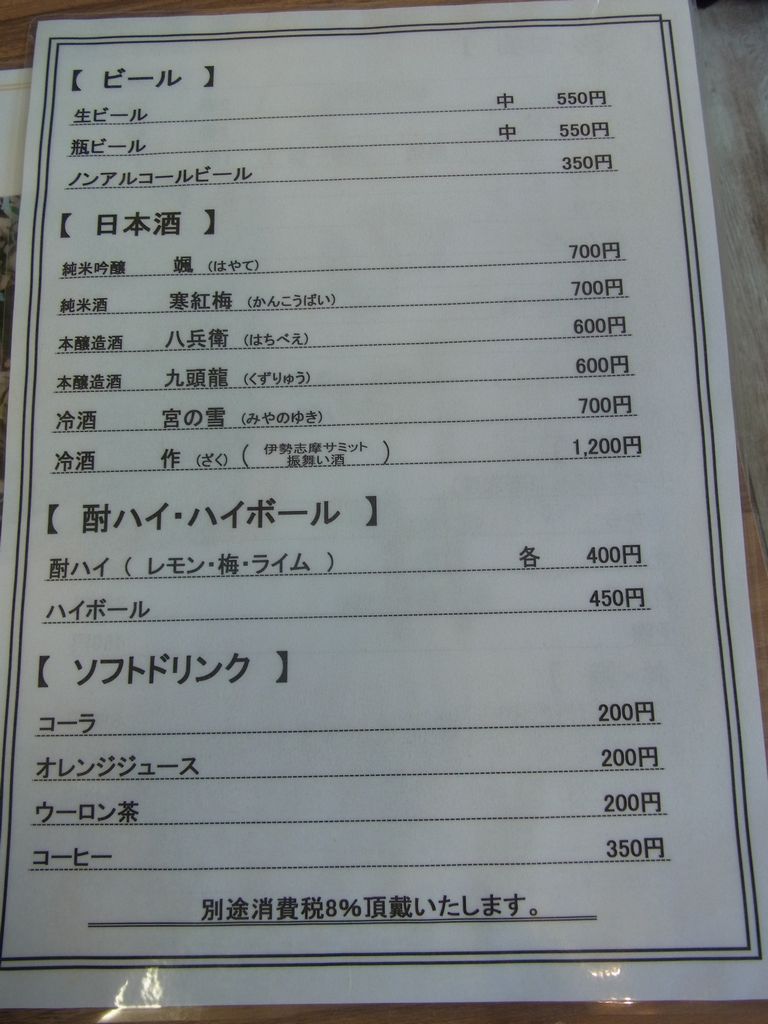 【 ビール 】
生ビール 中 550円
瓶ビール 中 550円
ノンアルコールビール 350円
【 日本酒 】
純米吟醸 颯 （はやて） 700円
純米酒 寒紅梅 （かんこうばい） 700円
本醸造酒 八兵衛 （はちべえ） 600円
本醸造酒 九頭龍 （くずりゅう） 600円
冷酒 宮の雪 （みやのゆき） 700円
冷酒 作 （ざく） （ 伊勢志摩サミット 振舞い酒 ） 1,200円
【 酎ハイ・ハイボール 】
酎ハイ （ レモン・梅・ライム ） 各 400円
ハイボール 450円
【 ソフトドリンク 】
コーラ 200円
オレンジジュース 200円
ウーロン茶 200円
コーヒー 350円
別途消費税8％頂戴いたします。